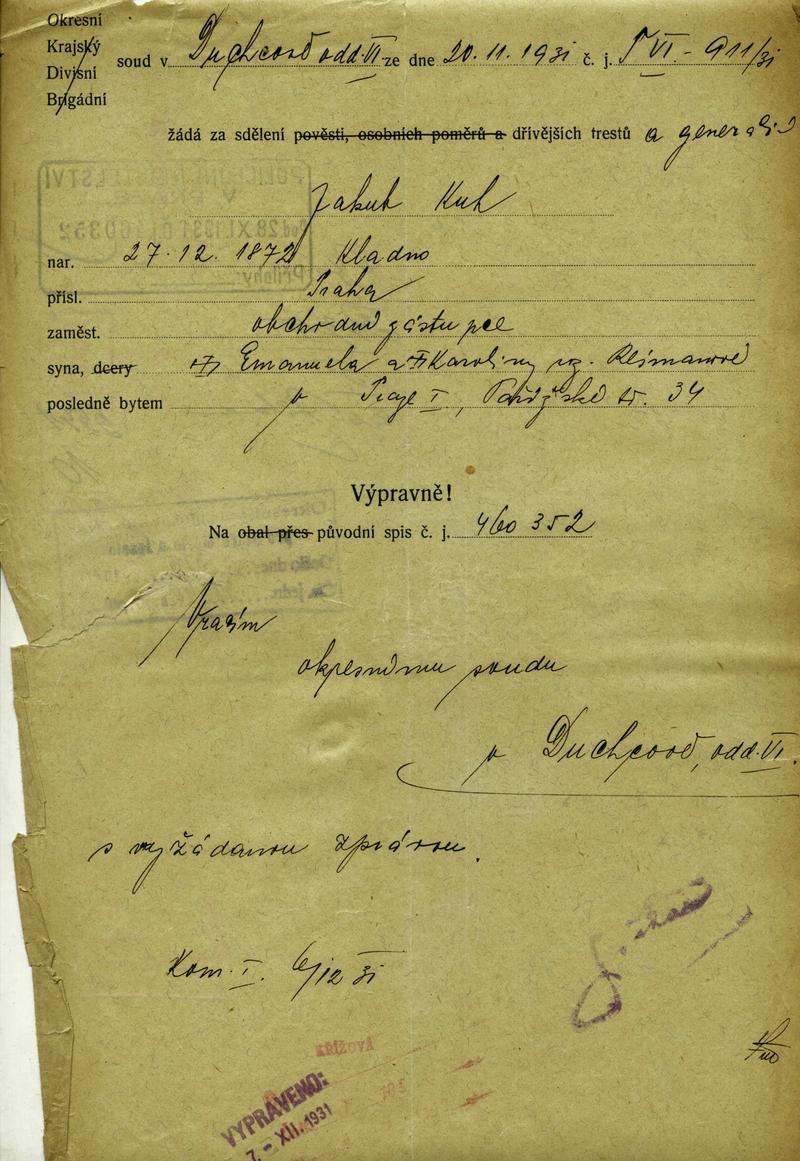 Okresní
Krajský
Divisní
Brigádní
soud v Duchcově odd. VI ze dne 20. 11. 1931 č. j. T VI - 911/31
žádá za sdělení pověsti, osobních poměrů a dřívějších trestů a generalií
Jakub Kuh
nar. 27. 12. 1872 Kladno
přísl. Praha
zaměst. obchodní zástupce
syna, dcery Emanuela a Karoliny roz.
posledně bytem v Praze I, Pařížská tř. 34
Výpravně!
Na obal přes původní spis č. j. 460 352
Vracím
okresnímu soudu
v Duchcově, odd. VI.
s vyžádanou zprávou.
Kom. I. 6/12 31
KŘÍŽOVÁ
VYPRAVENO:
7. - XII. 1931